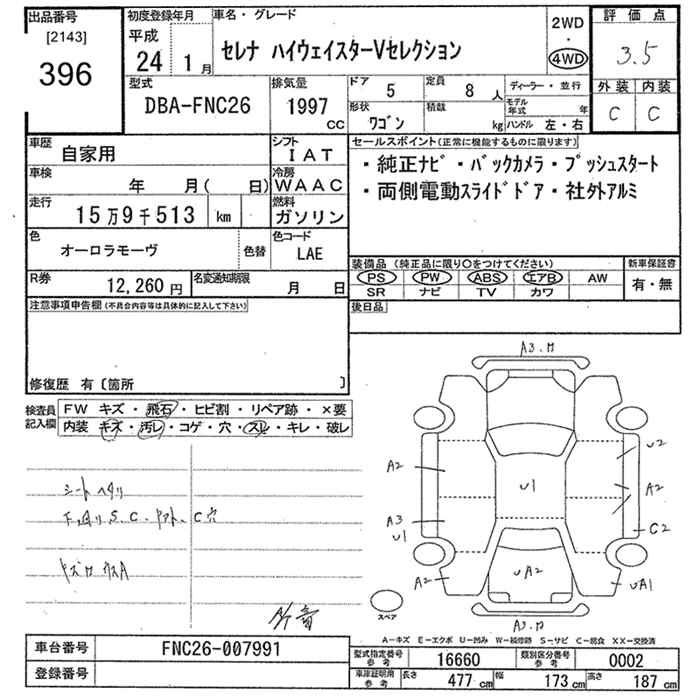 出品番号
[2143]
396
初度登録年月
平成
24 1月
車名・グレード
セレナ ハイウェイスターVセレクション
2WD
・
4WD
評価点
3.5
外装 内装
C C
型式
DBA-FNC26
排気量
1997
CC
ドア 5
定員 8人
ディーラー・並行
形状 ワゴン
積載 kg
モデル年式 年
ハンドル 左・右
車歴 自家用
シフト IAT
車検 年 月( 日)
冷房 WAAC
走行 15万9千513 km
燃料 ガソリン
色 オーロラモーヴ 色替
色コード LAE
R券 12,260円
名変通知期限 月 日
セールスポイント(正常に機能するものに限ります)
・純正ナビ・バックカメラ・プッシュスタート
・両側電動スライドドア・社外アルミ
装備品(純正品に限り○をつけてください)
新車保証書
PS PW ABS エアB AW
有・無
SR ナビ TV カワ
後日品
注意事項申告欄(不具合内容等は具体的に記入して下さい)
修復歴 有〔箇所 〕
検査員記入欄
FW キズ・飛石・ヒビ割・リペア跡・×要
内装 キズ・汚レ・コゲ・穴・スレ・キレ・破レ
シートヘタリ
A3.
A2
U2
U1
A2
A3
U1
C2
A2
UA2
UA1
A3.
スペア
A-キズ E-エクボ U-凹み W-補修跡 S-サビ C-腐食 XX-交換済
車台番号 FNC26-007991
登録番号
型式指定番号 参考 16660
類別区分番号 参考 0002
車庫証明用 参考 長さ 477cm 幅 173cm 高さ 187cm